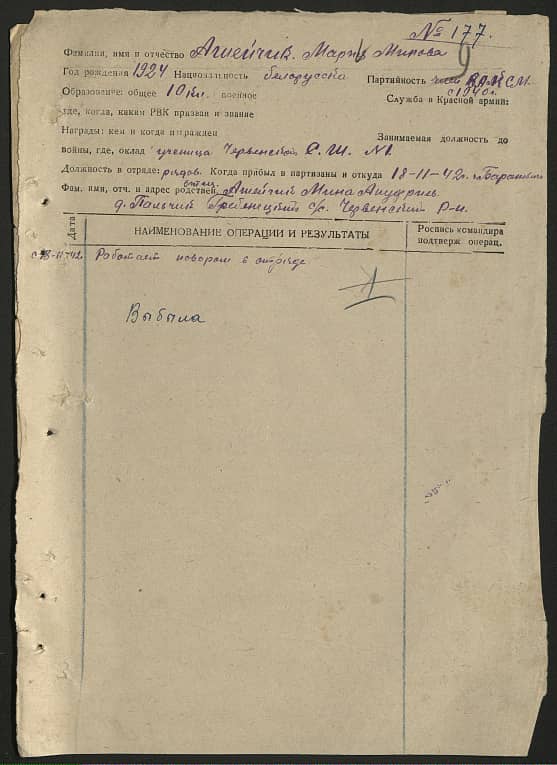 № 177.
9
Фамилия, имя и отчество Ашейчик Мария Минова
Год рождения 1924 Национальность белорусска Партийность член ВЛКСМ
с 1940 г.
Образование: общее 10 кл. военное Служба в Красной армии:
где, когда, каким РВК призван и звание
Награды: кем и когда награжден Занимаемая должность до
войны, где, оклад ученица Червенской С. Ш. №1.
Должность в отряде: рядов. Когда прибыл в партизаны и откуда 18-11-42г.
отец
Фам. имя, отч. и адрес родствен. Ашейчик Мина
д. Пальчик Гребенецкий с/с. Червенский р-н.
Дата
НАИМЕНОВАНИЕ ОПЕРАЦИИ И РЕЗУЛЬТАТЫ
Роспись командира
подтверж операц.
с 18-11-42 Работает поваром в отряде
Выбыла